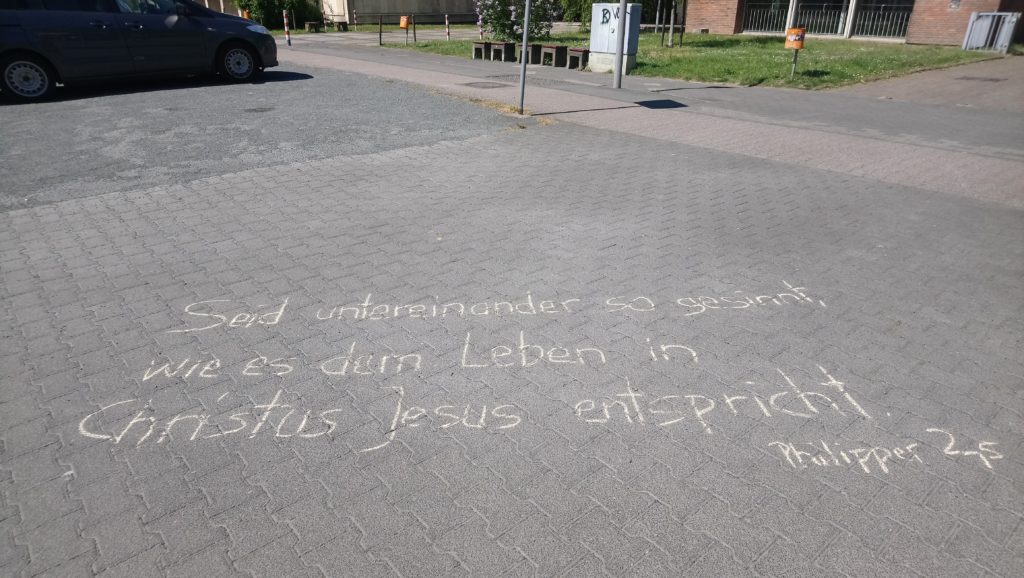 Seid untereinander so gesinnt,
wie es dem Leben in
Christus Jesus entspricht.
Philipper 2,5